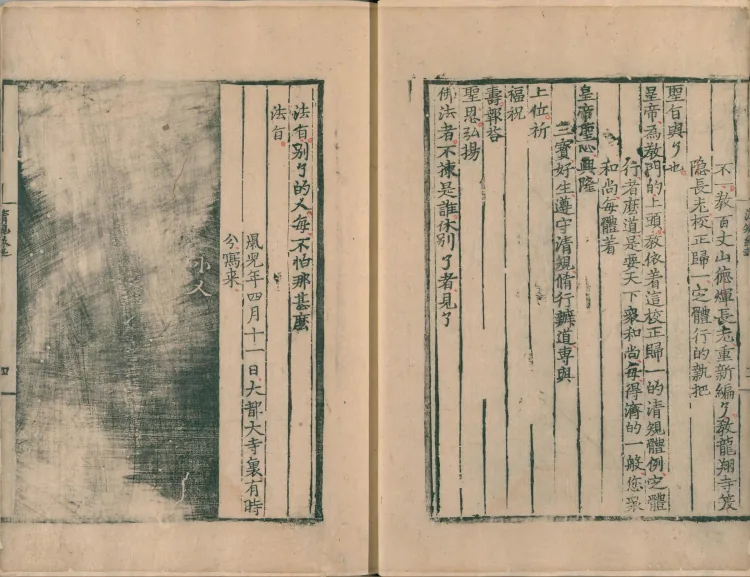 不一敎百丈山德煇長老重新編了敎龍翔寺笑
隱長老校正歸一定體行的執把
聖旨與了也
皇帝為敎門的上頭敎依着這校正歸一的清規體例定體
行者麽道是要天下衆和尚每得濟的一般您衆
和尚每體着
皇帝聖心興隆
三寶好生遵守清規脩行辦道專與
上位祈
福祝
壽報荅
聖恩弘揚
佛法者不揀是誰休別了者見了
法旨別了的人每不怕那甚麽
法旨
鼠兒年四月十一日大都大寺裏有時
分寫来
小人
四